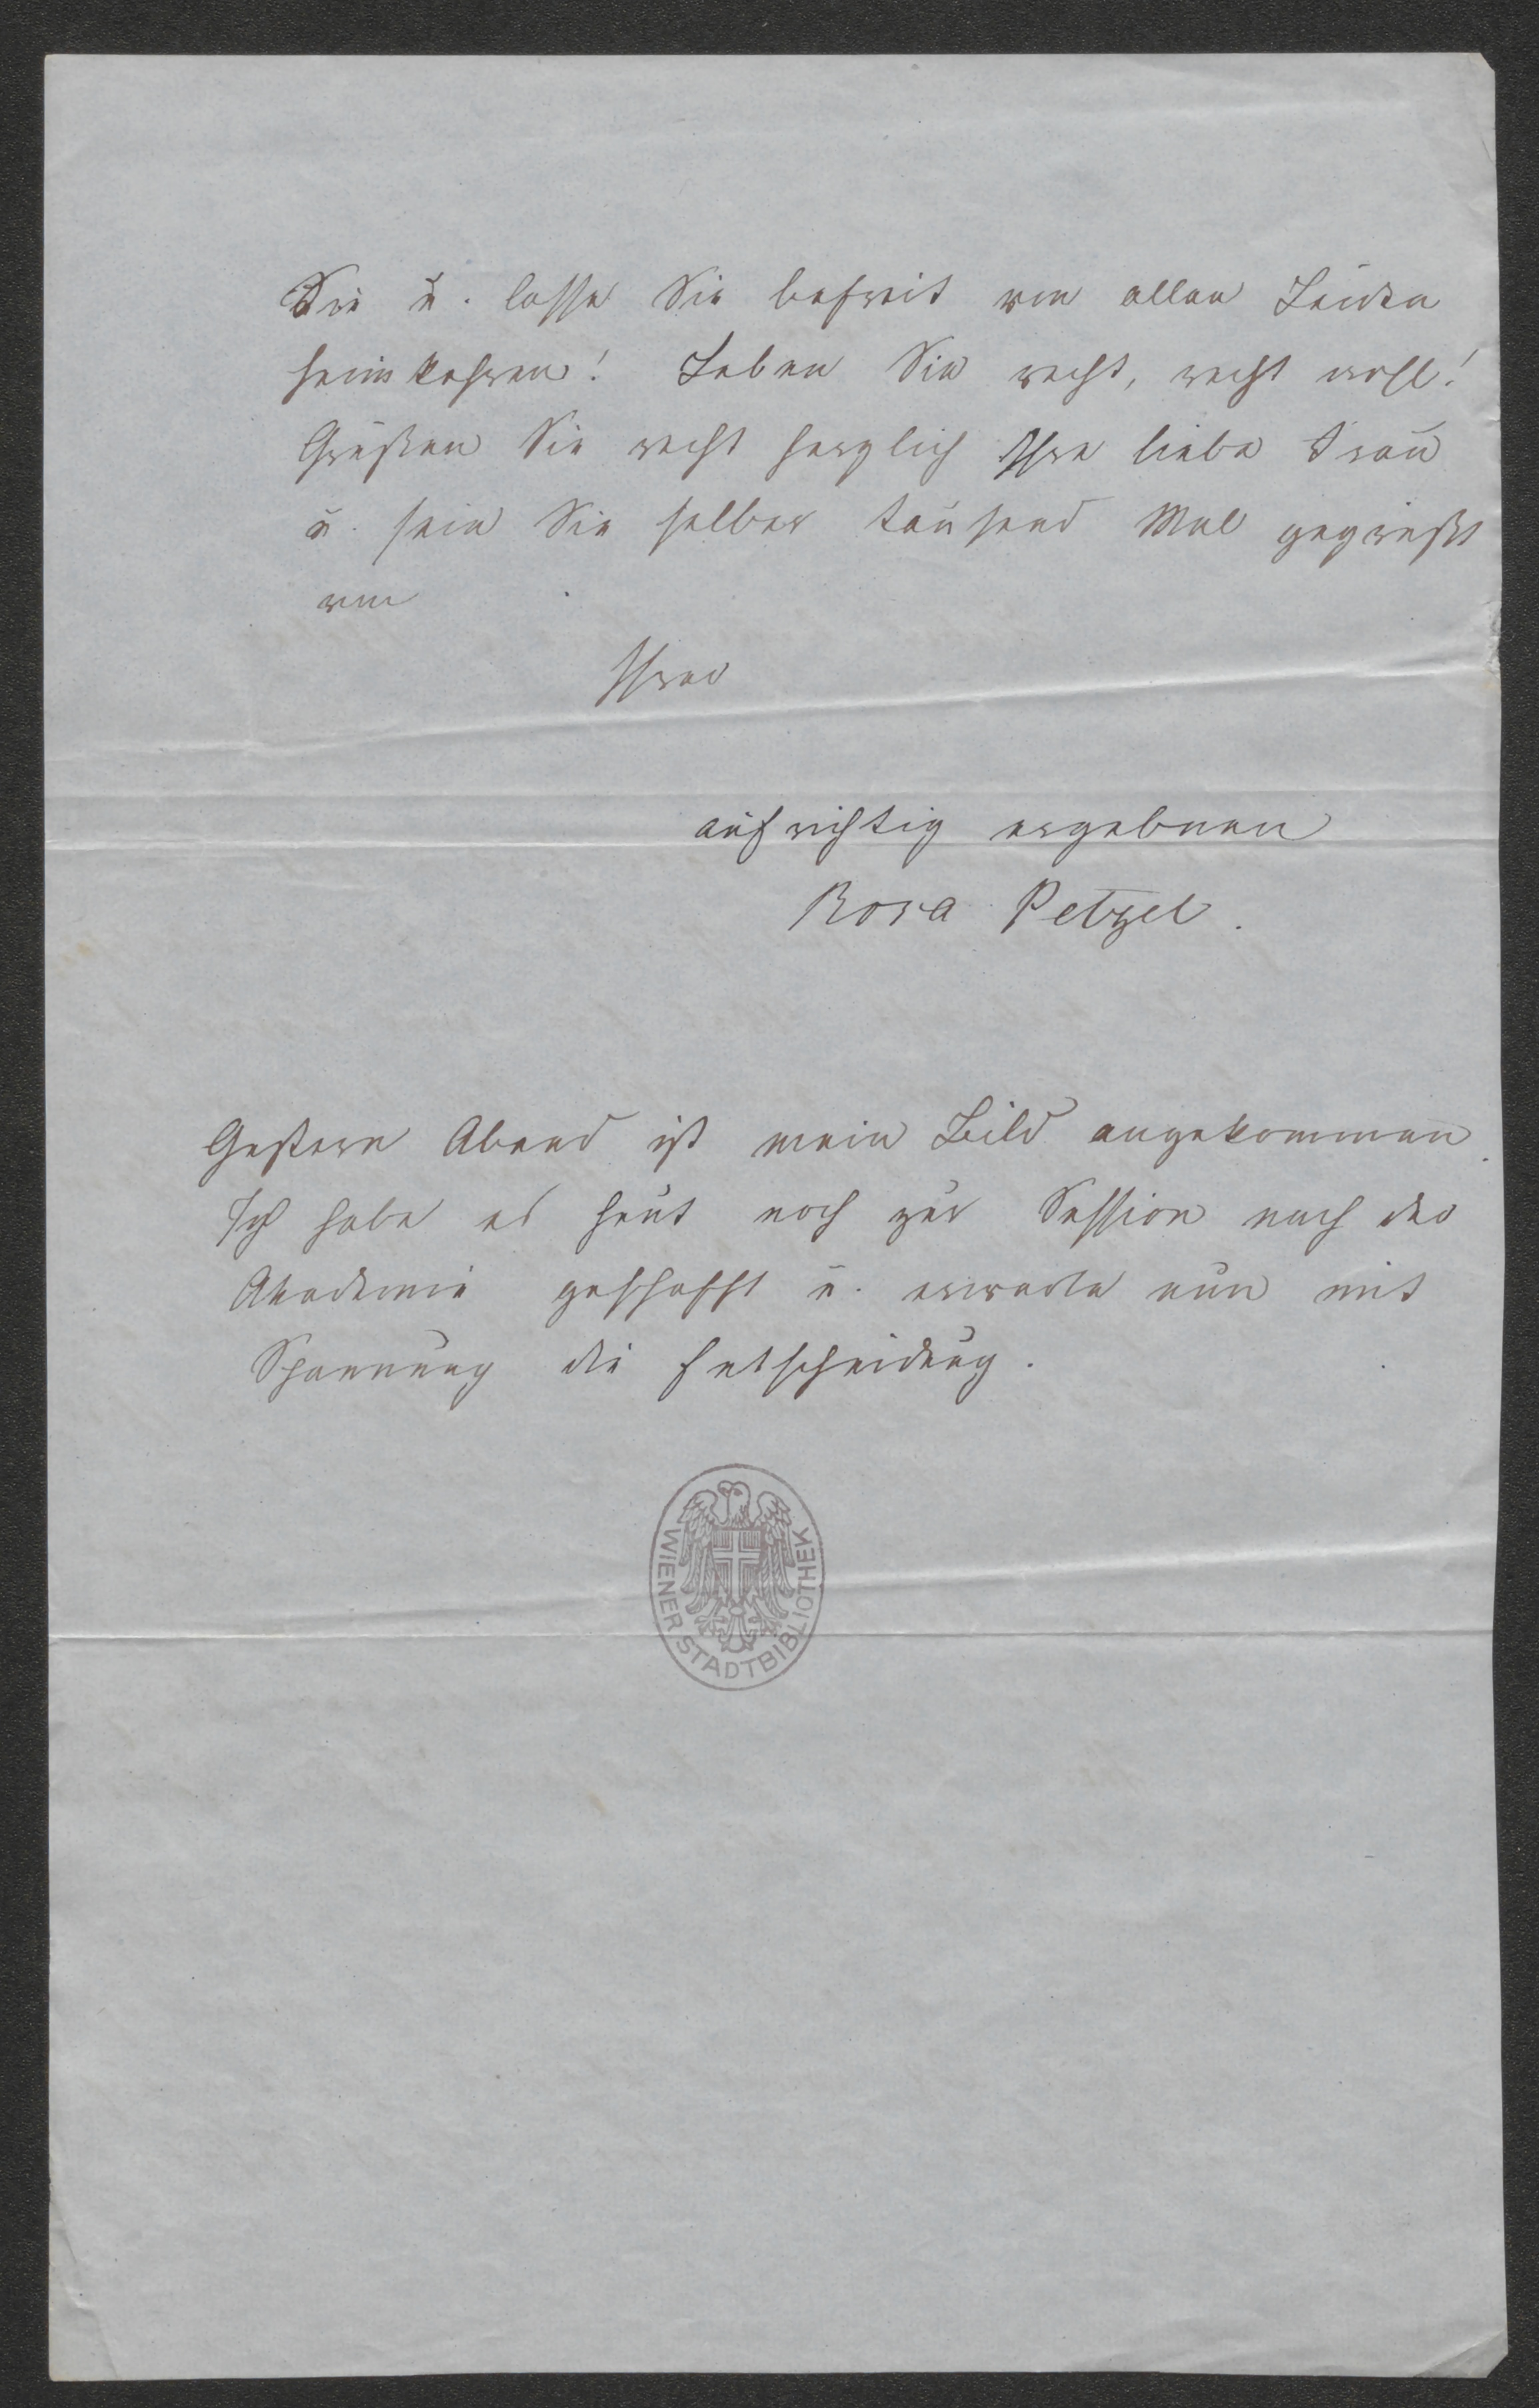 Sie u. lasse Sie befreit von allen Leiden
heimkehren! Leben Sie recht, recht wohl!
Grüßen Sie recht herzlich Ihre liebe Frau
u. sein Sie selber tausend Mal gegrüßt
von
Ihrer
aufrichtig ergebnen
Rosa Petzel.
Gestern Abend ist mein Bild angekommen.
Ich habe es heut noch zur Session nach der
Akademie geschafft u. erwarte nun mit
Spannung die Entscheidung.
WIENER STADTBIBLIOTHEK